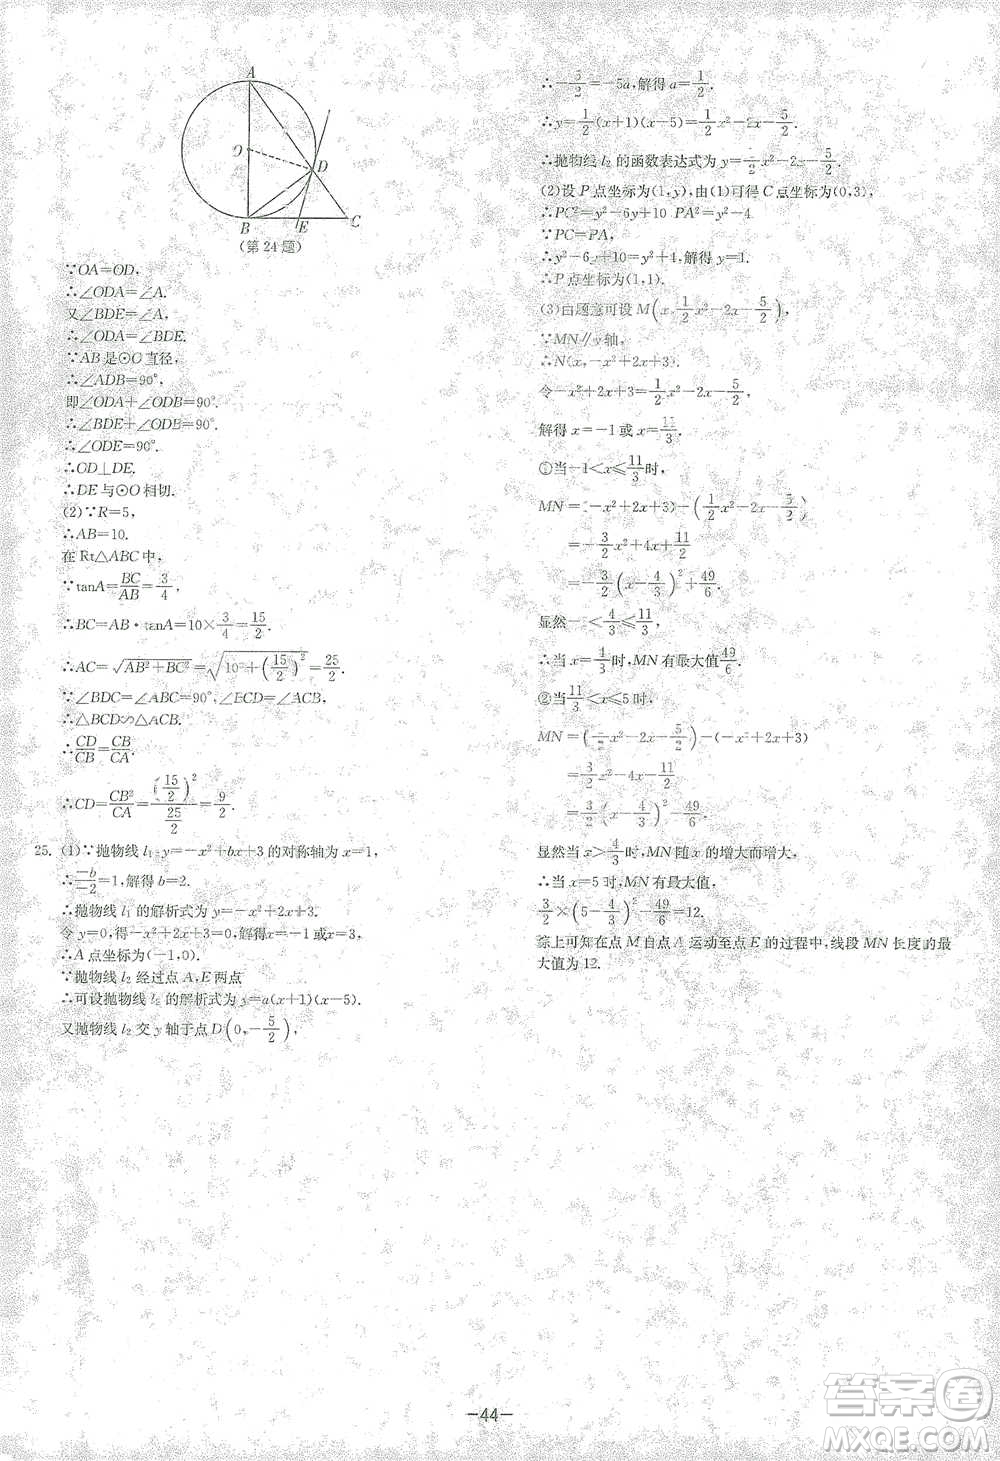 A
O
D
B
E
C
(第24题)
∵OA=OD,
∴∠ODA=∠A.
又∠BDE=∠A,
∴∠ODA=∠BDE.
∵AB是⊙O直径,
∴∠ADB=90°,
即∠ODA+∠ODB=90°.
∴∠BDE+∠ODB=90°.
∴∠ODE=90°.
∴OD⊥DE.
∴DE与⊙O相切.
(2)∵R=5,
∴AB=10.
在Rt△ABC中,
∵tanA=BC/AB=3/4,
∴BC=AB·tanA=10×3/4=15/2.
∴AC=√(AB²+BC²)=√(10²+(15/2)²)=25/2.
∵∠BDC=∠ABC=90°,∠BCD=∠ACB,
∴△BCD∽△ACB.
∴CD/CB=CB/CA.
∴CD=CB²/CA=(15/2)²/(25/2)=9/2.
25. (1)∵抛物线l₁:y=-x²+bx+3的对称轴为x=1,
∴-b/-2=1,解得b=2.
∴抛物线l₁的解析式为y=-x²+2x+3.
令y=0,得-x²+2x+3=0,解得x=-1或x=3.
∴A点坐标为(-1,0).
∵抛物线l₂经过点A,E两点
∴可设抛物线l₂的解析式为y=a(x+1)(x-5).
又抛物线l₂交y轴于点D(0,-5/2),
∴-5/2=-5a,解得a=1/2.
∴y=1/2(x+1)(x-5)=1/2x²-2x-5/2.
∴抛物线l₂的函数表达式为y=1/2x²-2x-5/2.
(2)设P点坐标为(1,y),由(1)可得C点坐标为(0,3),
∴PC²=y²-6y+10 PA²=y²-4.
∵PC=PA,
∴y²-6y+10=y²+4,解得y=1.
∴P点坐标为(1,1).
(3)由题意可设M(x,1/2x²-2x-5/2),
∵MN∥y轴,
∴N(x,-x²+2x+3).
令-x²+2x+3=1/2x²-2x-5/2,
解得x=-1或x=11/3.
①当-1<x≤11/3时,
MN=(-x²+2x+3)-(1/2x²-2x-5/2)
=-3/2x²+4x+11/2
=-3/2(x-4/3)²+49/6.
显然-1<4/3≤11/3.
∴当x=4/3时,MN有最大值49/6.
②当11/3<x≤5时,
MN=(1/2x²-2x-5/2)-(-x²+2x+3)
=3/2x²-4x-11/2
=3/2(x-4/3)²-49/6.
显然当x>4/3时,MN随x的增大而增大,
∴当x=5时,MN有最大值,
3/2×(5-4/3)²-49/6=12.
综上可知在点M自点A运动至点E的过程中,线段MN长度的最
大值为12.
-44-
答案卷
MXQE.COM